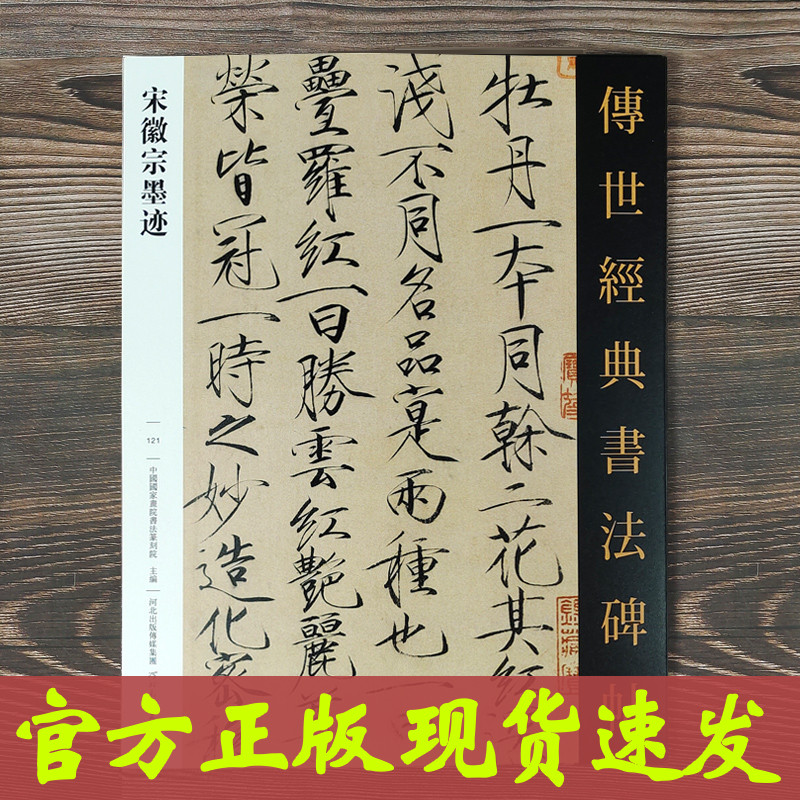 傳世經典書法碑帖
牡丹一本同榦二花其紅
淺不同名品寔兩種也一曰
疊羅紅一曰勝雲紅艷麗尊
榮皆冠一時之妙造化密移
宋徽宗墨迹
121
中國國家畫院書法篆刻院 主編
河北出版傳媒集團
官方正版现货速发